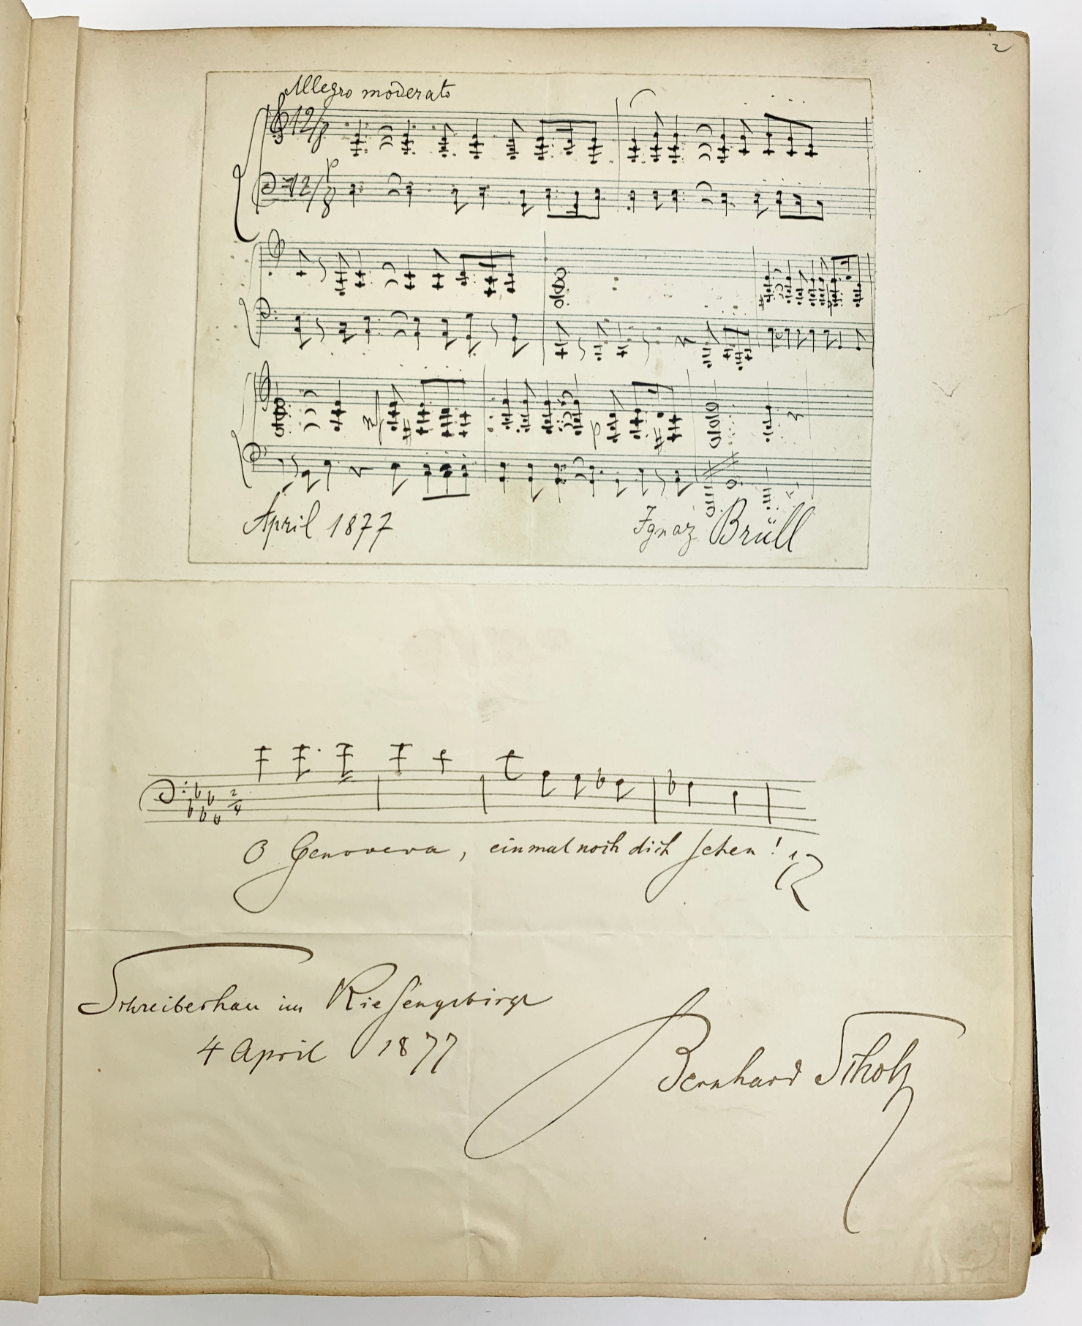 2
Allegro moderato
12/8
p
12/8
p
April 1877
Ignaz Brüll
2/4
O Genoveva, einmal noch dich sehen!
Schreiberhau im Riesengebirge
4 April 1877
Bernhard Scholz